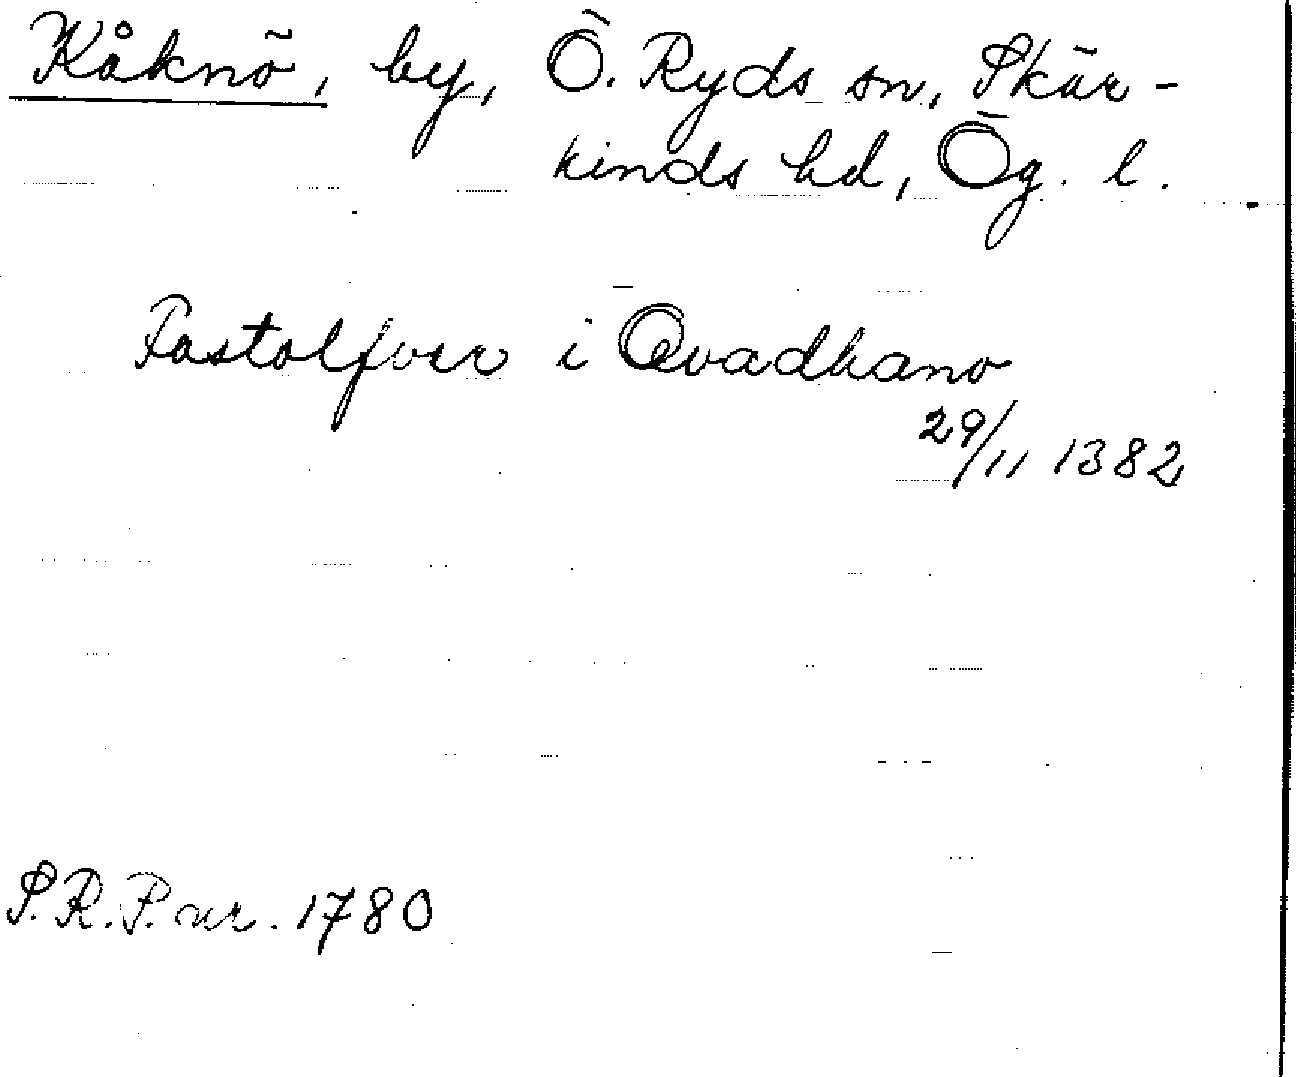 Kåknö, by, Ö. Ryds sn, Skär-
kinds hd, Ög. l.
i Qvadhano
29/11 1382
S.R.P. nr. 1780